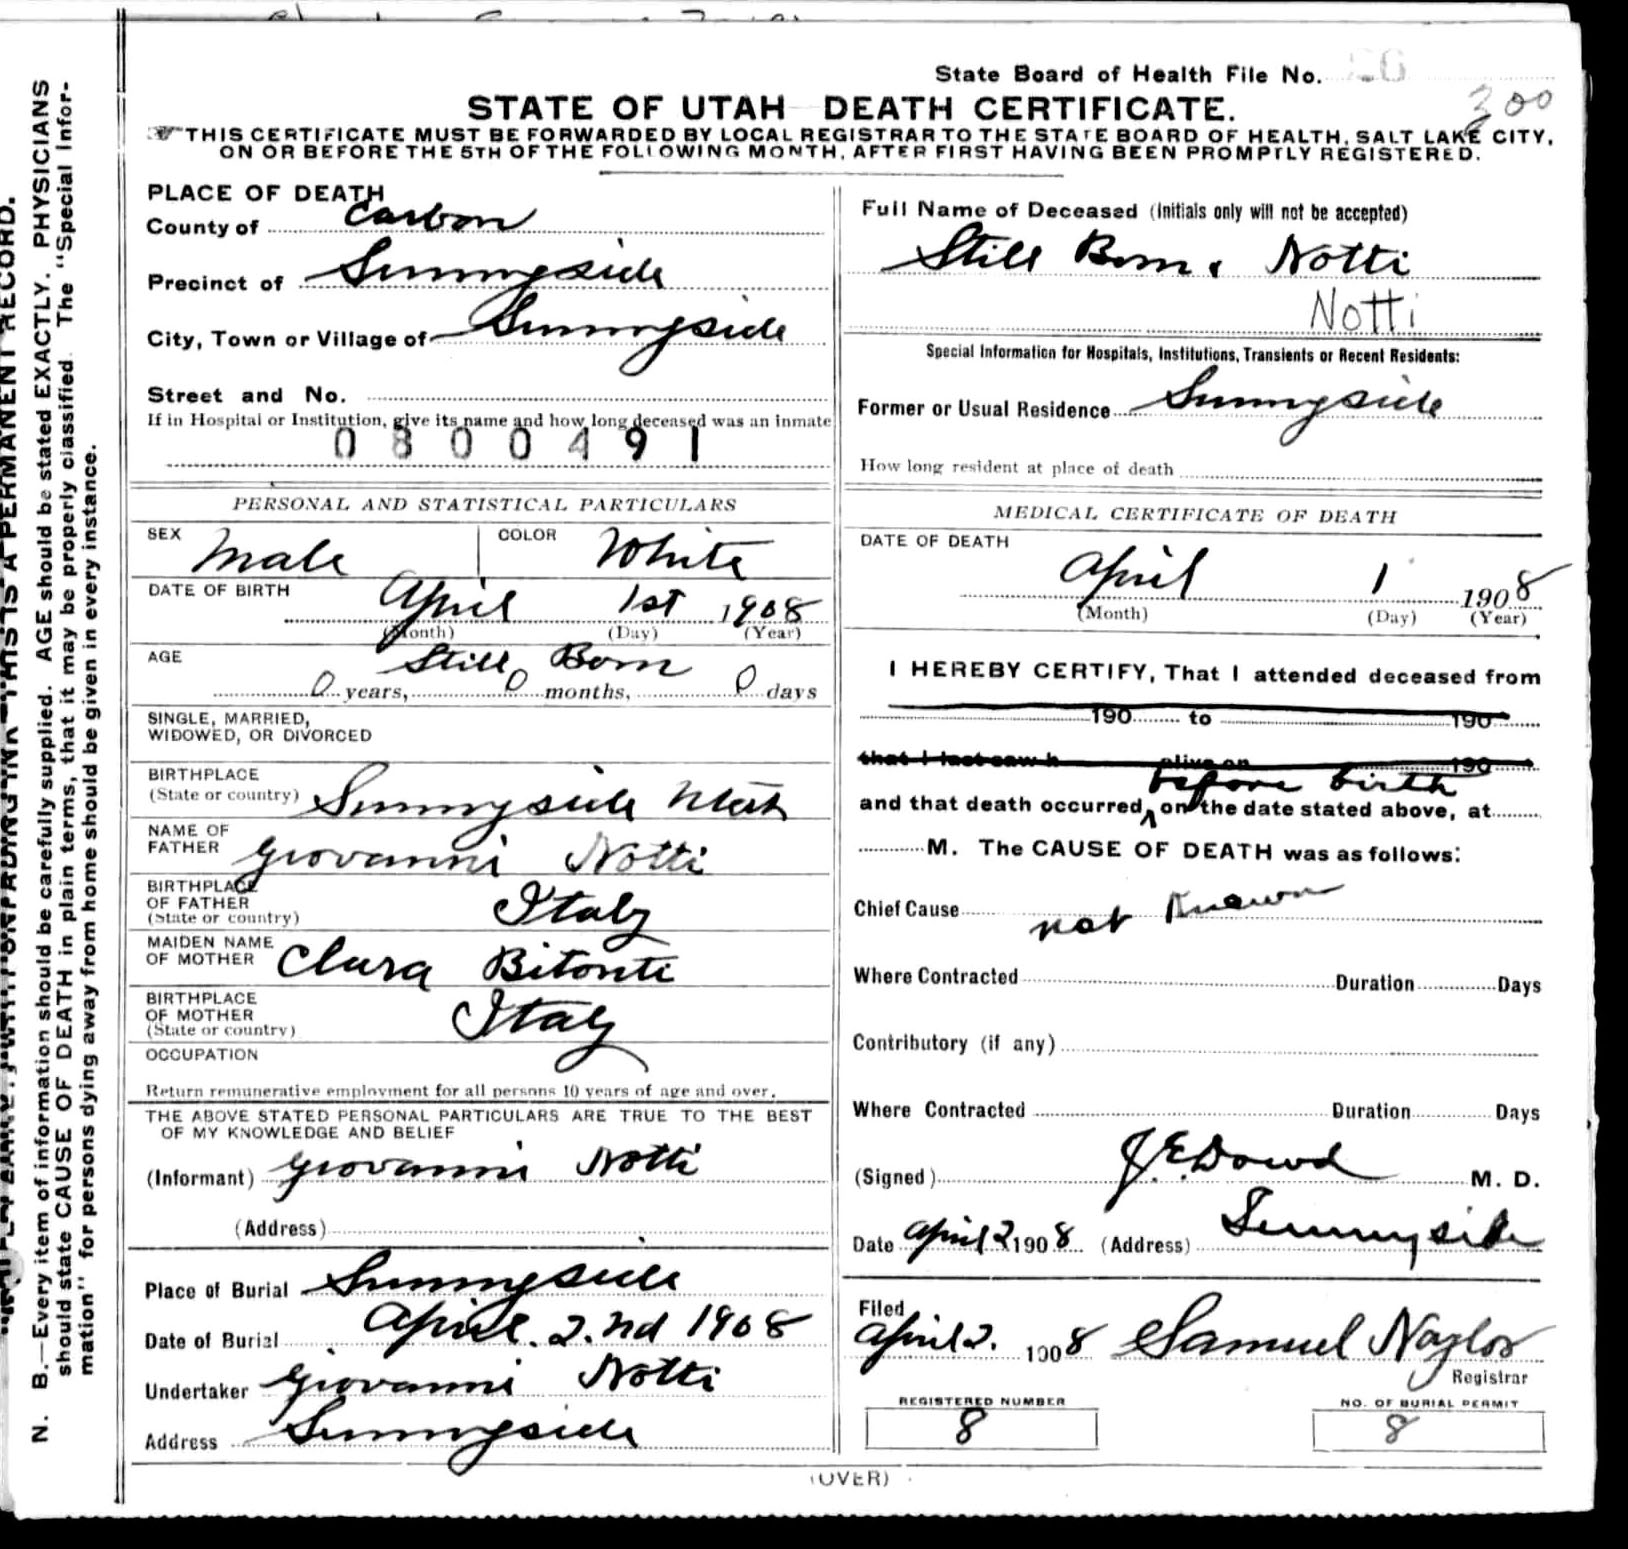 State Board of Health File No.
300
STATE OF UTAH DEATH CERTIFICATE.
THIS CERTIFICATE MUST BE FORWARDED BY LOCAL REGISTRAR TO THE STATE BOARD OF HEALTH, SALT LAKE CITY,
ON OR BEFORE THE 5TH OF THE FOLLOWING MONTH, AFTER FIRST HAVING BEEN PROMPTLY REGISTERED.
PLACE OF DEATH
County of Carbon
Precinct of Sunnyside
City, Town or Village of Sunnyside
Street and No.
If in Hospital or Institution, give its name and how long deceased was an inmate
0800491
PERSONAL AND STATISTICAL PARTICULARS
SEX Male COLOR White
DATE OF BIRTH April 1st 1908
(Month) (Day) (Year)
AGE Still Born
0 years, 0 months, 0 days
SINGLE, MARRIED,
WIDOWED, OR DIVORCED
BIRTHPLACE
(State or country) Sunnyside Utah
NAME OF
FATHER Giovanni Notti
BIRTHPLACE
OF FATHER
(State or country) Italy
MAIDEN NAME
OF MOTHER Clara Bitonti
BIRTHPLACE
OF MOTHER
(State or country) Italy
OCCUPATION
Return remunerative employment for all persons 10 years of age and over.
THE ABOVE STATED PERSONAL PARTICULARS ARE TRUE TO THE BEST
OF MY KNOWLEDGE AND BELIEF
(Informant) Giovanni Notti
(Address)
Place of Burial Sunnyside
Date of Burial April. 2.nd 1908
Undertaker Giovanni Notti
Address Sunnyside
Full Name of Deceased (Initials only will not be accepted)
Still Born. Notti
Notti
Special Information for Hospitals, Institutions, Transients or Recent Residents:
Former or Usual Residence Sunnyside
How long resident at place of death
MEDICAL CERTIFICATE OF DEATH
DATE OF DEATH
April 1 1908
(Month) (Day) (Year)
I HEREBY CERTIFY, That I attended deceased from
190 to 190
that I last saw h alive on 190
before birth
and that death occurred, on the date stated above, at
M. The CAUSE OF DEATH was as follows:
Chief Cause not known
Where Contracted Duration Days
Contributory (if any)
Where Contracted Duration Days
(Signed) J.E. Dowd M. D.
Date April 2 1908 (Address) Sunnyside
Filed
April 2. 1908 Samuel Naylor
Registrar
REGISTERED NUMBER
8
NO. OF BURIAL PERMIT
8
(OVER)
N. B.—Every item of information should be carefully supplied. AGE should be stated EXACTLY. PHYSICIANS
should state CAUSE OF DEATH in plain terms, that it may be properly classified. The "Special Infor-
mation" for persons dying away from home should be given in every instance.
WITH UNFADING INK—THIS IS A PERMANENT RECORD.